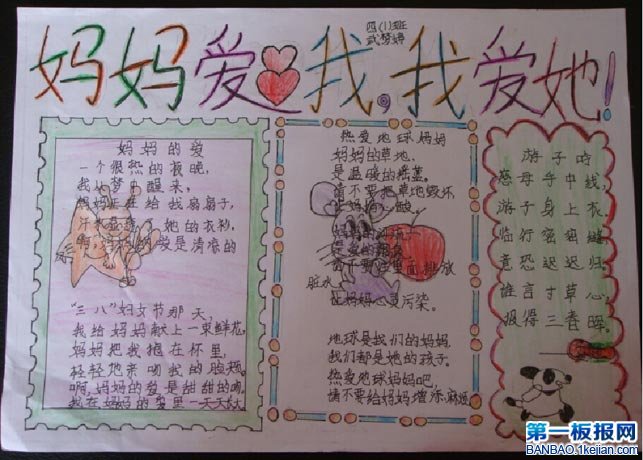 四(1)班
武梦婷
妈妈爱我,我爱她!
妈妈的爱
一个很热的夜晚,
我从梦中醒来,
妈妈正在给我扇扇子,
汗水湿透了她的衣衫,
啊,妈妈的爱是清凉的
“三八”妇女节那天,
我给妈妈献上一束鲜花,
妈妈把我抱在怀里,
轻轻地亲吻我的脸颊,
啊,妈妈的爱是甜甜的吻,
我在妈妈的爱里一天天长大
热爱地球妈妈
妈妈的草地,
是温暖的摇篮。
请不要把草地毁坏,
里面排放
脏水
让妈妈心灵污染。
地球是我们的妈妈,
我们都是她的孩子。
热爱地球妈妈吧,
请不要给妈妈增添麻烦
游子吟
慈母手中线,
游子身上衣,
临行密密缝
意恐迟迟归。
谁言寸草心,
报得三春晖。
第一板报网
BANBAO.1kejian.com